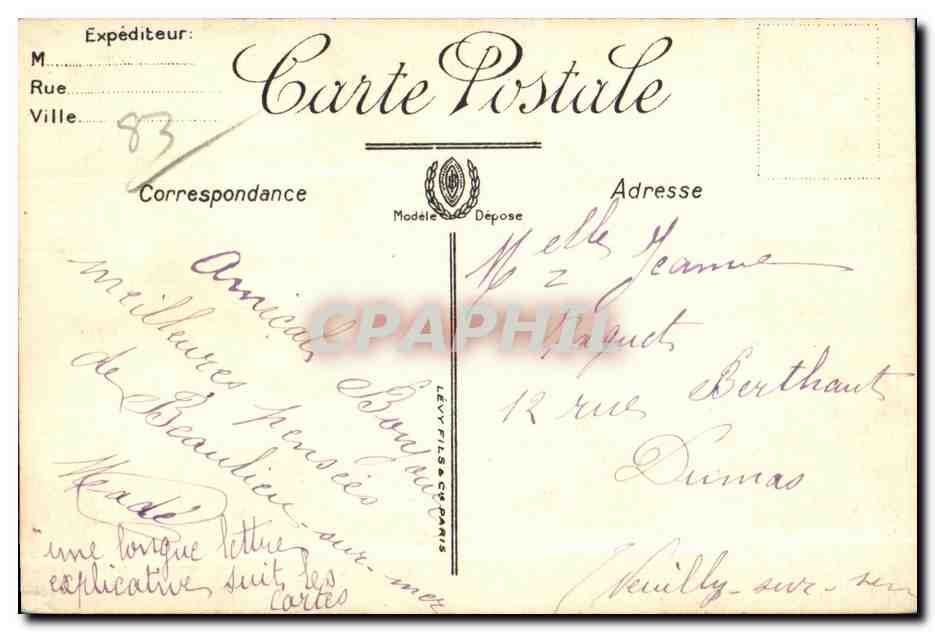 Expéditeur:
M
Rue
Ville
83
Carte Postale
Correspondance
Modèle Dépose
Adresse
Amicals Bonjour
meilleures pensées
de Beaulieu-sur-mer
Madé
une longue lettre
explicative suit les
cartes
LÉVY FILS & Cie PARIS
Melle Jeanne
Paquet
12 rue Berthaut
Dumas
Neuilly-sur-
CPAPHIL